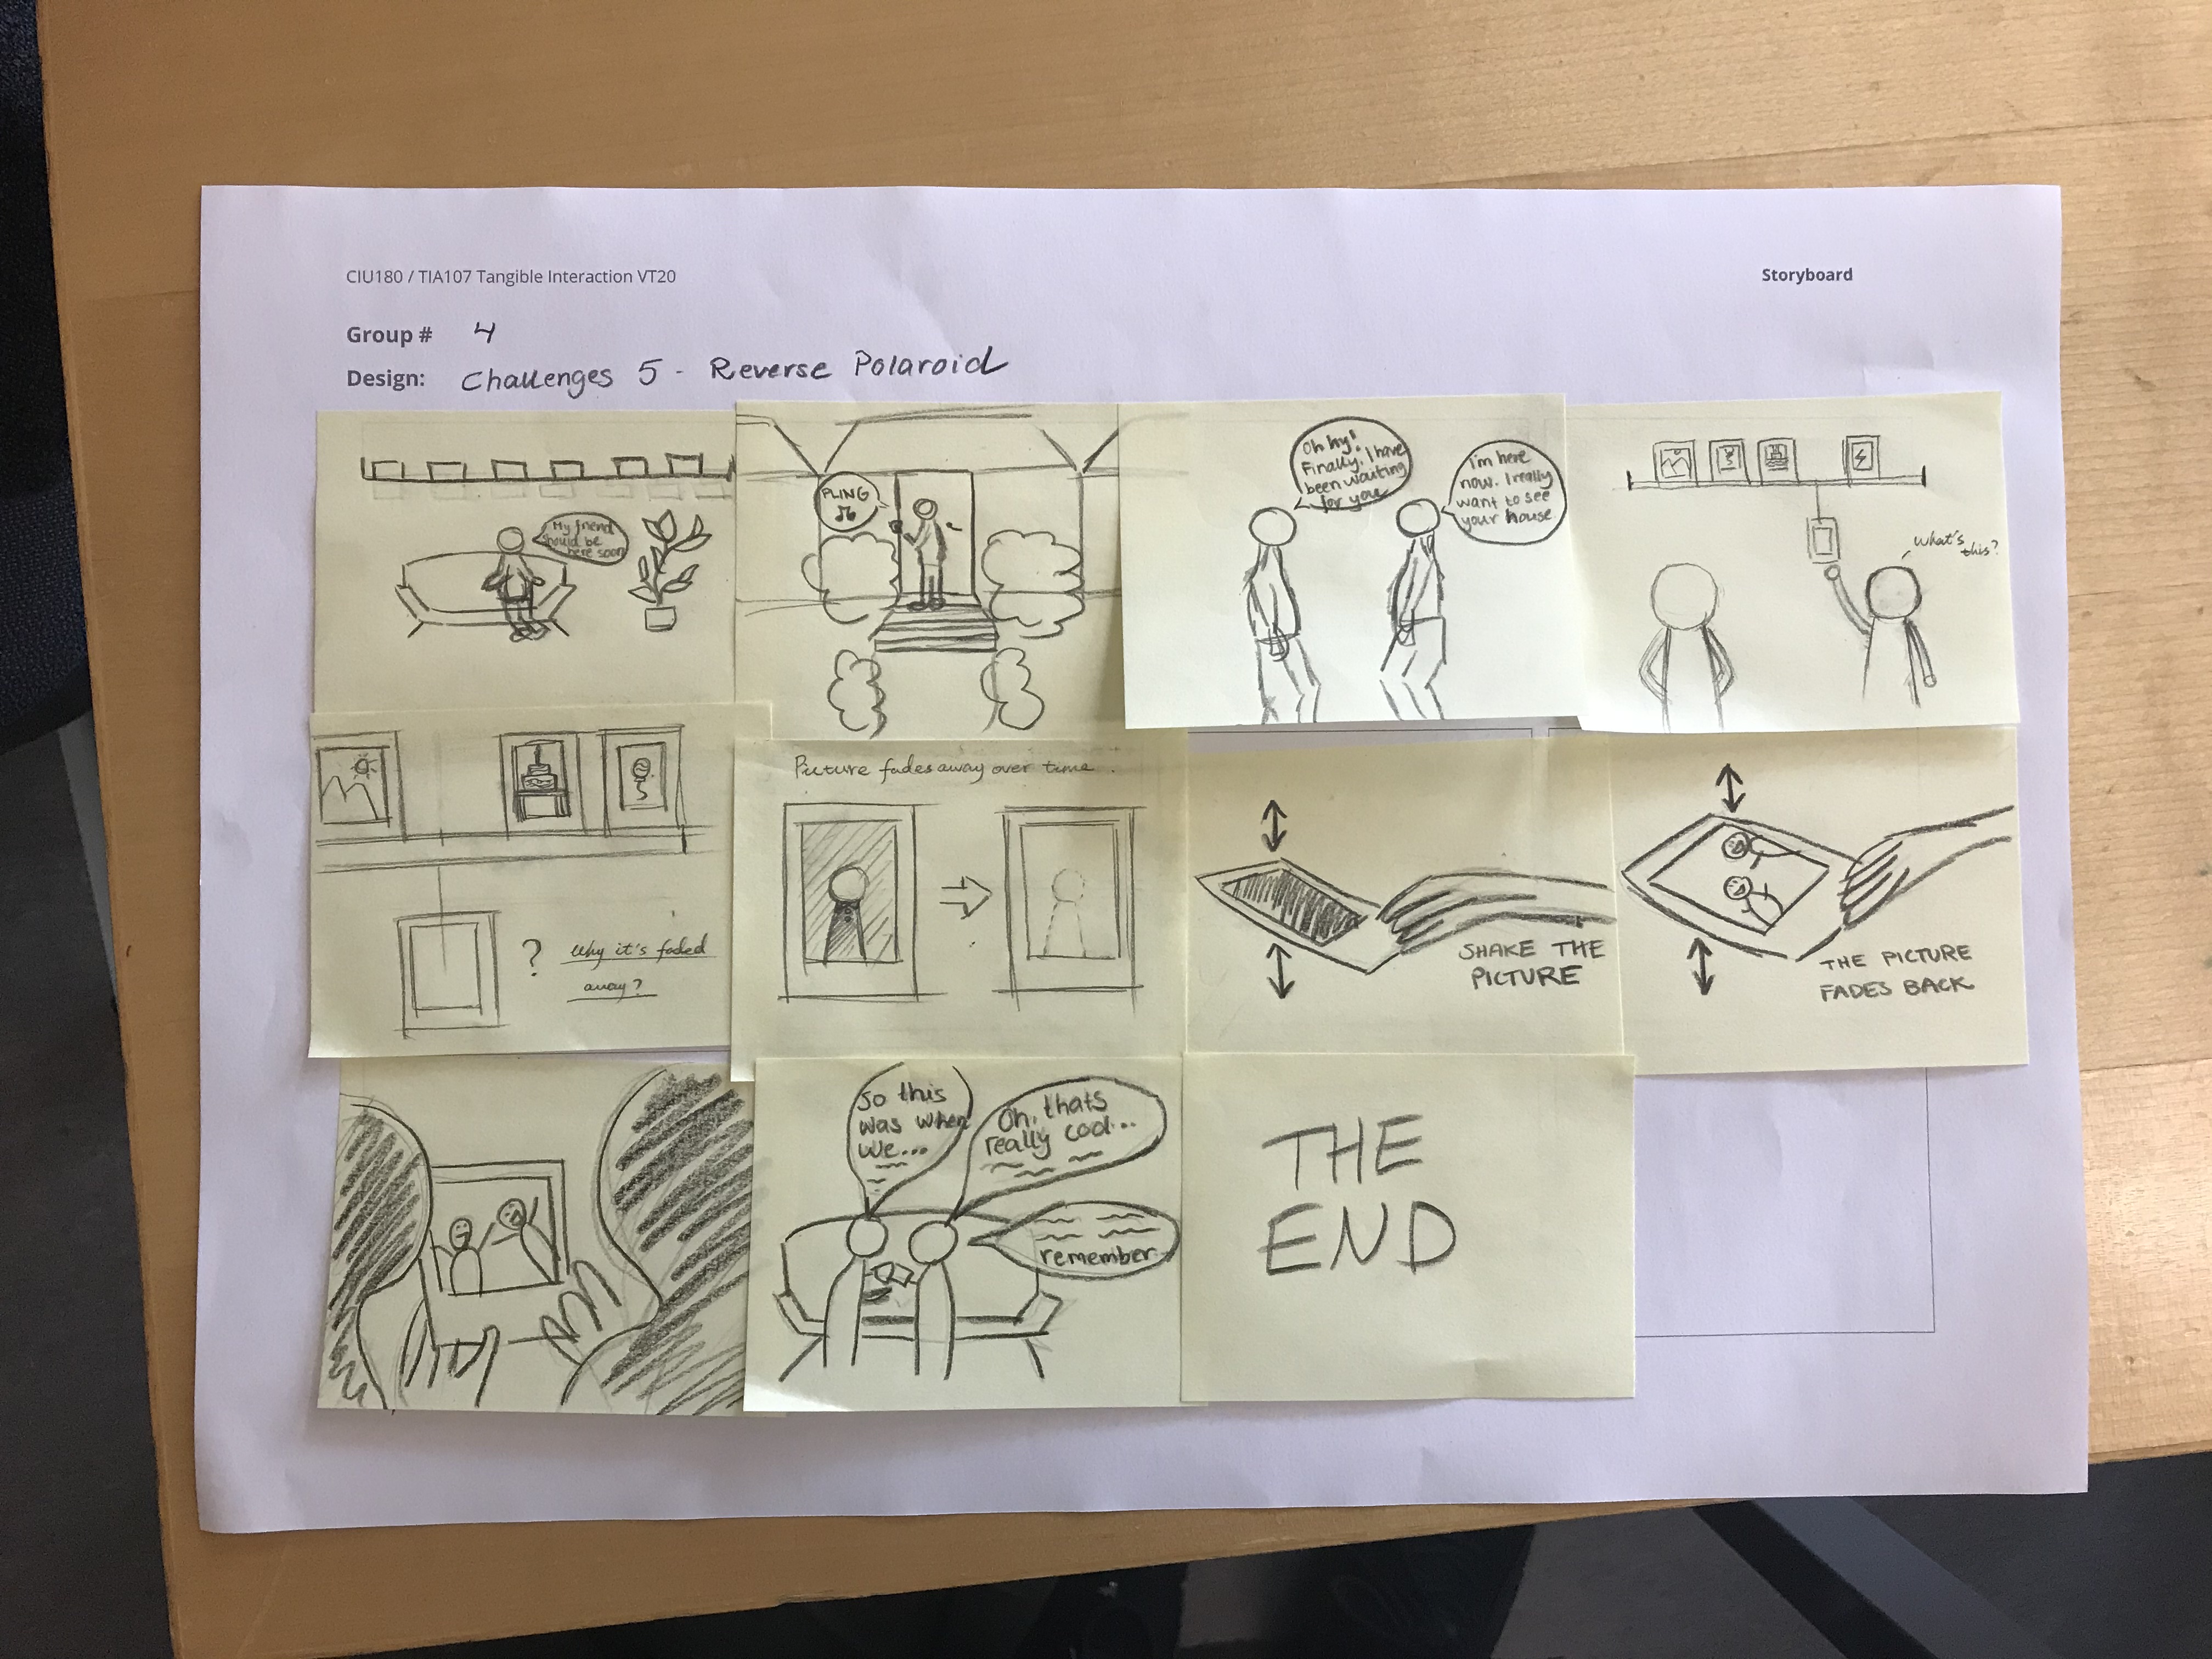 CIU180 / TIA107 Tangible Interaction VT20
Storyboard
Group # 4
Design: Challenges 5 - Reverse Polaroid
My friend
should be
here soon
PLING
Oh hy!
Finally, I have
been waiting
for you
I'm here
now. I really
want to see
your house
what's
this?
? why it's faded
away?
Picture fades away over time.
SHAKE THE
PICTURE
THE PICTURE
FADES BACK
So this
was when
we...
Oh, thats
really cool...
remember
THE
END